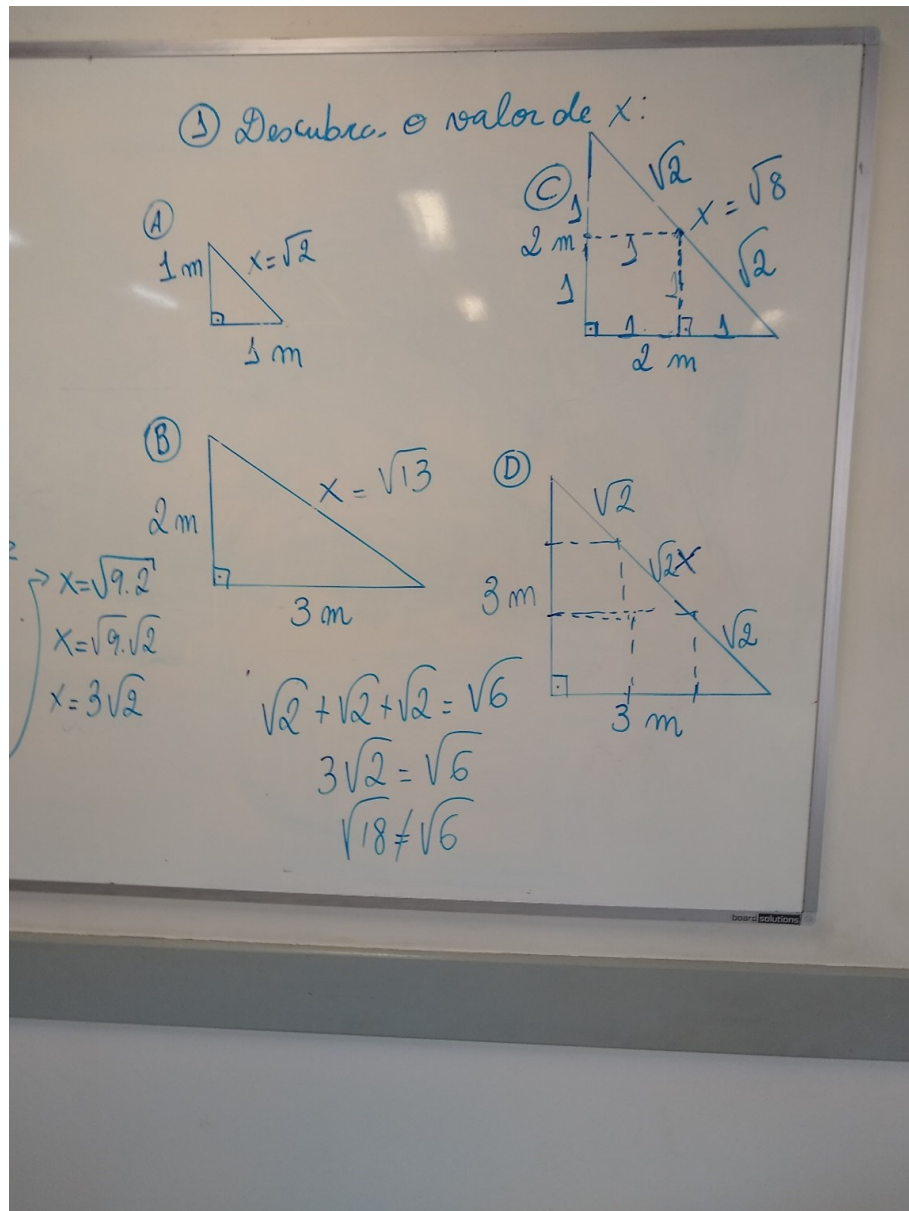 ① Descubra o valor de x:
Ⓐ
1 m
x=√2
1 m
Ⓒ
√2
x = √8
1
2 m
1
√2
1
1
1
1
2 m
Ⓑ
2 m
x = √13
3 m
Ⓓ
√2
√2
x
3 m
√2
3 m
x=√9.2
x=√9.√2
x=3√2
√2+√2+√2=√6
3√2=√6
√18≠√6
board solutions